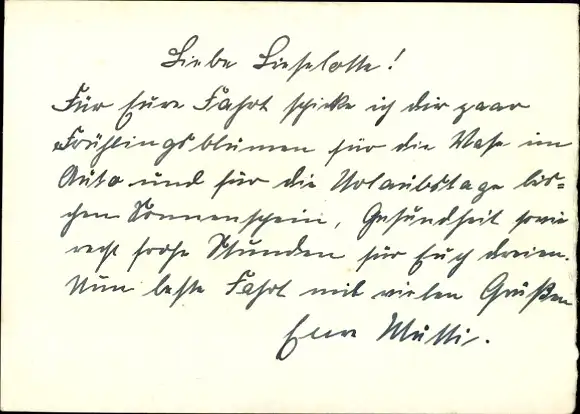 Liebe Lieselotte!
Für Eure Fahrt schicke ich dir paar
Frühlingsblumen für die Vase im
Auto und für die Urlaubstage bis=
chen Sonnenschein, Gesundheit sowie
recht frohe Stunden für Euch dreien.
Nun beste Fahrt mit vielen Grüßen
Eure Mutti.